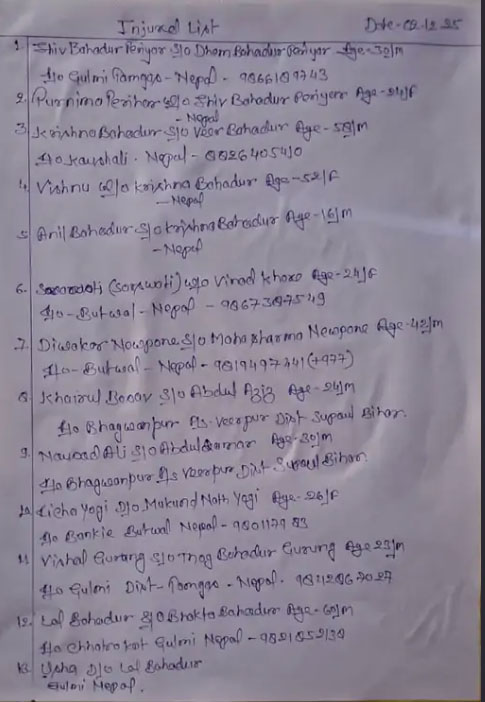 Injured List Date - 02.12.25
1. Shiv Bahadur Periyar S/o Dham Bahadur Periyar Age-30/M
R/o Gulmi Tamgas - Nepal - 9866189743
2. Purnima Perihar W/o Shiv Bahadur Periyar Age-24/F
- Nepal
3. Krishna Bahadur S/o Veer Bahadur Age-58/M
R/o Kaushali. Nepal -
4. Vishnu W/o Krishna Bahadur Age-52/F
- Nepal
5. Anil Bahadur S/o Krishna Bahadur Age-16/M
- Nepal
6. (Sarswati) W/o Vinod Khare Age-24/F
R/o - Butwal - Nepal - 9867387549
7. Diwakar Newpane S/o Maha sharma Newpane Age-42/M
R/o - Butwal - Nepal - 9819497341 (+977)
8. Khairul S/o Abdul Aziz Age-24/M
R/o Bhagwanpur Ps. Veerpur Dist Supaul Bihar.
9. Naushad Ali S/o Abdul Age-30/M
R/o Bhagwanpur Ps Veerpur Dist Supaul Bihar.
10. Richa Yogi D/o Mukund Nath Yogi Age-26/F
R/o Bankie Butwal Nepal -
11. Vishal Gurung S/o Bahadur Gurung Age 23/M
R/o Gulmi Dist - Tamgas - Nepal.
12. Lal Bahadur S/o Bhakta Bahadur Age-60/M
R/o Chhatrakot Gulmi Nepal -
13. Usha D/o Lal Bahadur
Gulmi Nepal.